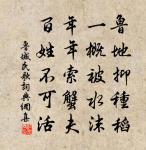 魯地抑種稻
一概被水沫
年年索蟹夫
百姓不可活
魯城民歌